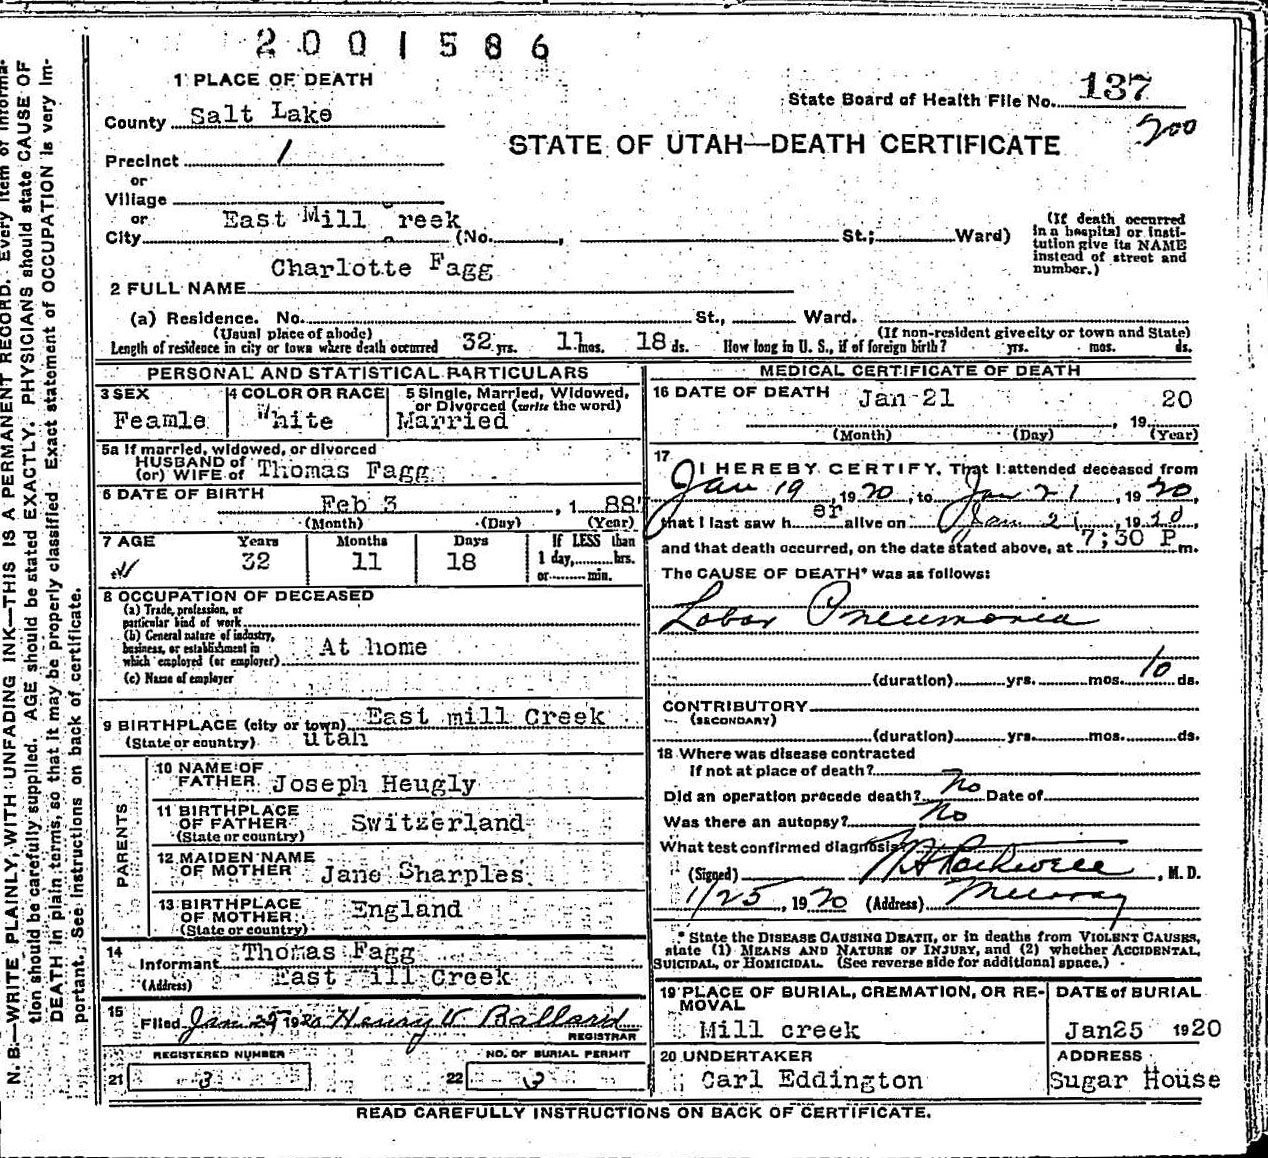 2001586
1 PLACE OF DEATH
State Board of Health File No. 137
200
County Salt Lake
STATE OF UTAH—DEATH CERTIFICATE
Precinct 1
or
Village
or East Mill Creek
City (No. , St.; Ward)
(If death occurred in a hospital or institution give its NAME instead of street and number.)
Charlotte Fagg
2 FULL NAME
(a) Residence. No. St., Ward.
(Usual place of abode) (If non-resident give city or town and State)
Length of residence in city or town where death occurred 32 yrs. 11 mos. 18 ds. How long in U. S., if of foreign birth? yrs. mos. ds.
PERSONAL AND STATISTICAL PARTICULARS
3 SEX 4 COLOR OR RACE 5 Single, Married, Widowed,
or Divorced (write the word)
Feamle White Married
5a If married, widowed, or divorced
HUSBAND of
(or) WIFE of Thomas Fagg
6 DATE OF BIRTH
Feb 3 , 1 88
(Month) (Day) (Year)
7 AGE Years Months Days If LESS than
32 11 18 1 day, hrs.
or min.
8 OCCUPATION OF DECEASED
(a) Trade, profession, or
particular kind of work
(b) General nature of industry,
business, or establishment in At home
which employed (or employer)
(c) Name of employer
9 BIRTHPLACE (city or town) East mill Creek
(State or country) utah
PARENTS
10 NAME OF
FATHER Joseph Heugly
11 BIRTHPLACE
OF FATHER Switzerland
(State or country)
12 MAIDEN NAME
OF MOTHER Jane Sharples
13 BIRTHPLACE
OF MOTHER England
(State or country)
14 Thomas Fagg
Informant
(Address) East ill Creek
15 Filed Jan 29 1920 Henry W Ballard
REGISTRAR
REGISTERED NUMBER NO. OF BURIAL PERMIT
21 3 22 3
MEDICAL CERTIFICATE OF DEATH
16 DATE OF DEATH Jan 21 20
, 19
(Month) (Day) (Year)
17
I HEREBY CERTIFY, That I attended deceased from
Jan 19 , 1920, to Jan 21 , 1920,
that I last saw her alive on Jan 21 , 1920,
and that death occurred, on the date stated above, at 7;30 P m.
The CAUSE OF DEATH* was as follows:
Lobar Pneumonia
(duration) yrs. mos. 10 ds.
CONTRIBUTORY
(SECONDARY)
(duration) yrs. mos. ds.
18 Where was disease contracted
If not at place of death?
Did an operation precede death? No Date of
Was there an autopsy? No
What test confirmed diagnosis?
(Signed) , M. D.
1/25, 1920 (Address) Murray
* State the DISEASE CAUSING DEATH, or in deaths from VIOLENT CAUSES,
state (1) MEANS AND NATURE OF INJURY, and (2) whether ACCIDENTAL,
SUICIDAL, or HOMICIDAL. (See reverse side for additional space.)
19 PLACE OF BURIAL, CREMATION, OR RE-
MOVAL
DATE of BURIAL
Mill creek Jan25 1920
20 UNDERTAKER ADDRESS
Carl Eddington Sugar House
READ CAREFULLY INSTRUCTIONS ON BACK OF CERTIFICATE.
N. B.—WRITE PLAINLY, WITH UNFADING INK—THIS IS A PERMANENT RECORD. Every item of informa-
tion should be carefully supplied. AGE should be stated EXACTLY. PHYSICIANS should state CAUSE OF
DEATH in plain terms, so that it may be properly classified. Exact statement of OCCUPATION is very im-
portant. See instructions on back of certificate.